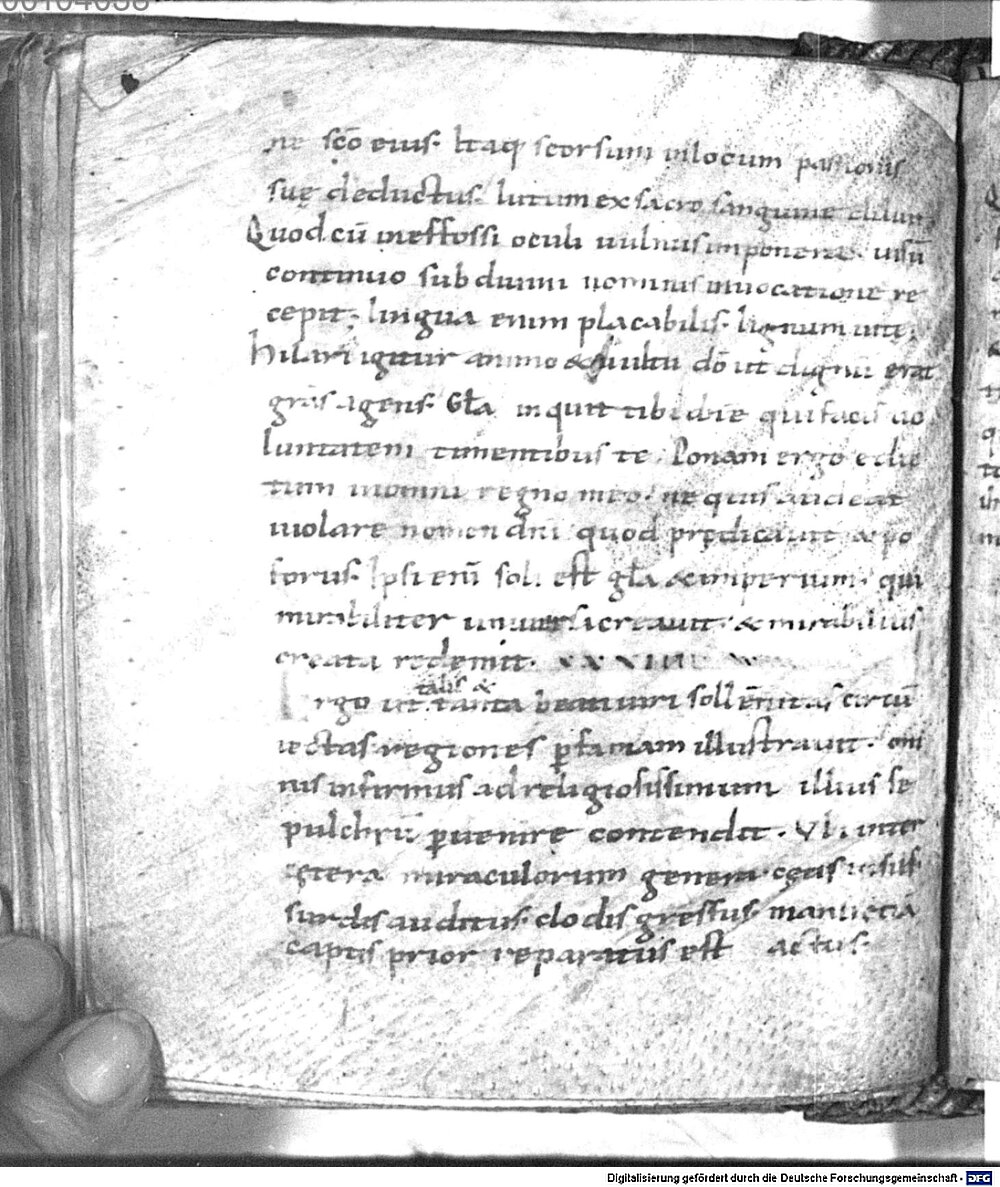 00104088
ne sc̄o eius. Itaq; seorsum in locum passionis
suę deductus. lutum ex sacro sanguine diluit.
Quod cū in effossi oculi uulnus inponeret. uisū
continuo sub diuini nominis inuocatione re
cepit; lingua enim placabilis. lignum uitę.
hilari igitur animo & uultu dō ut dignū erat
grās agens. Gła inquit tibi dn̄e qui facis uo
luntatem timentibus te. Ponam ergo edic
tum in omni regno meo. ne quis audeat
uiolare nomen dn̄i quod prędicauit apo
Ipsi eni̅ soli est gła & imperium. qui
mirabiliter creauit. & mirabilius
creata redemit. XXXIIII
Ergo ut talis & tanta beati uiri soll circū
iectas regiones p̱ famam illustrauit. om
nis infirmus ad religiosissimum illius se
pulchrū p̱uenire contendit. Vbi inter
cętera miraculorum genera. cęcis uisus
surdis auditus. clodis gressus. manu etiā
captis prior reparatus est actus.
Digitalisierung gefördert durch die Deutsche Forschungsgemeinschaft - DFG